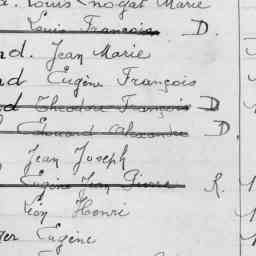 . Louis Nogat Marie
Louis François D.
nd. Jean Marie
nd Eugène François
d Théodore François D
Edouard Alexandre D.
Jean Joseph
Eugène Jean Pierre R.
Léon Henri
ger Eugène